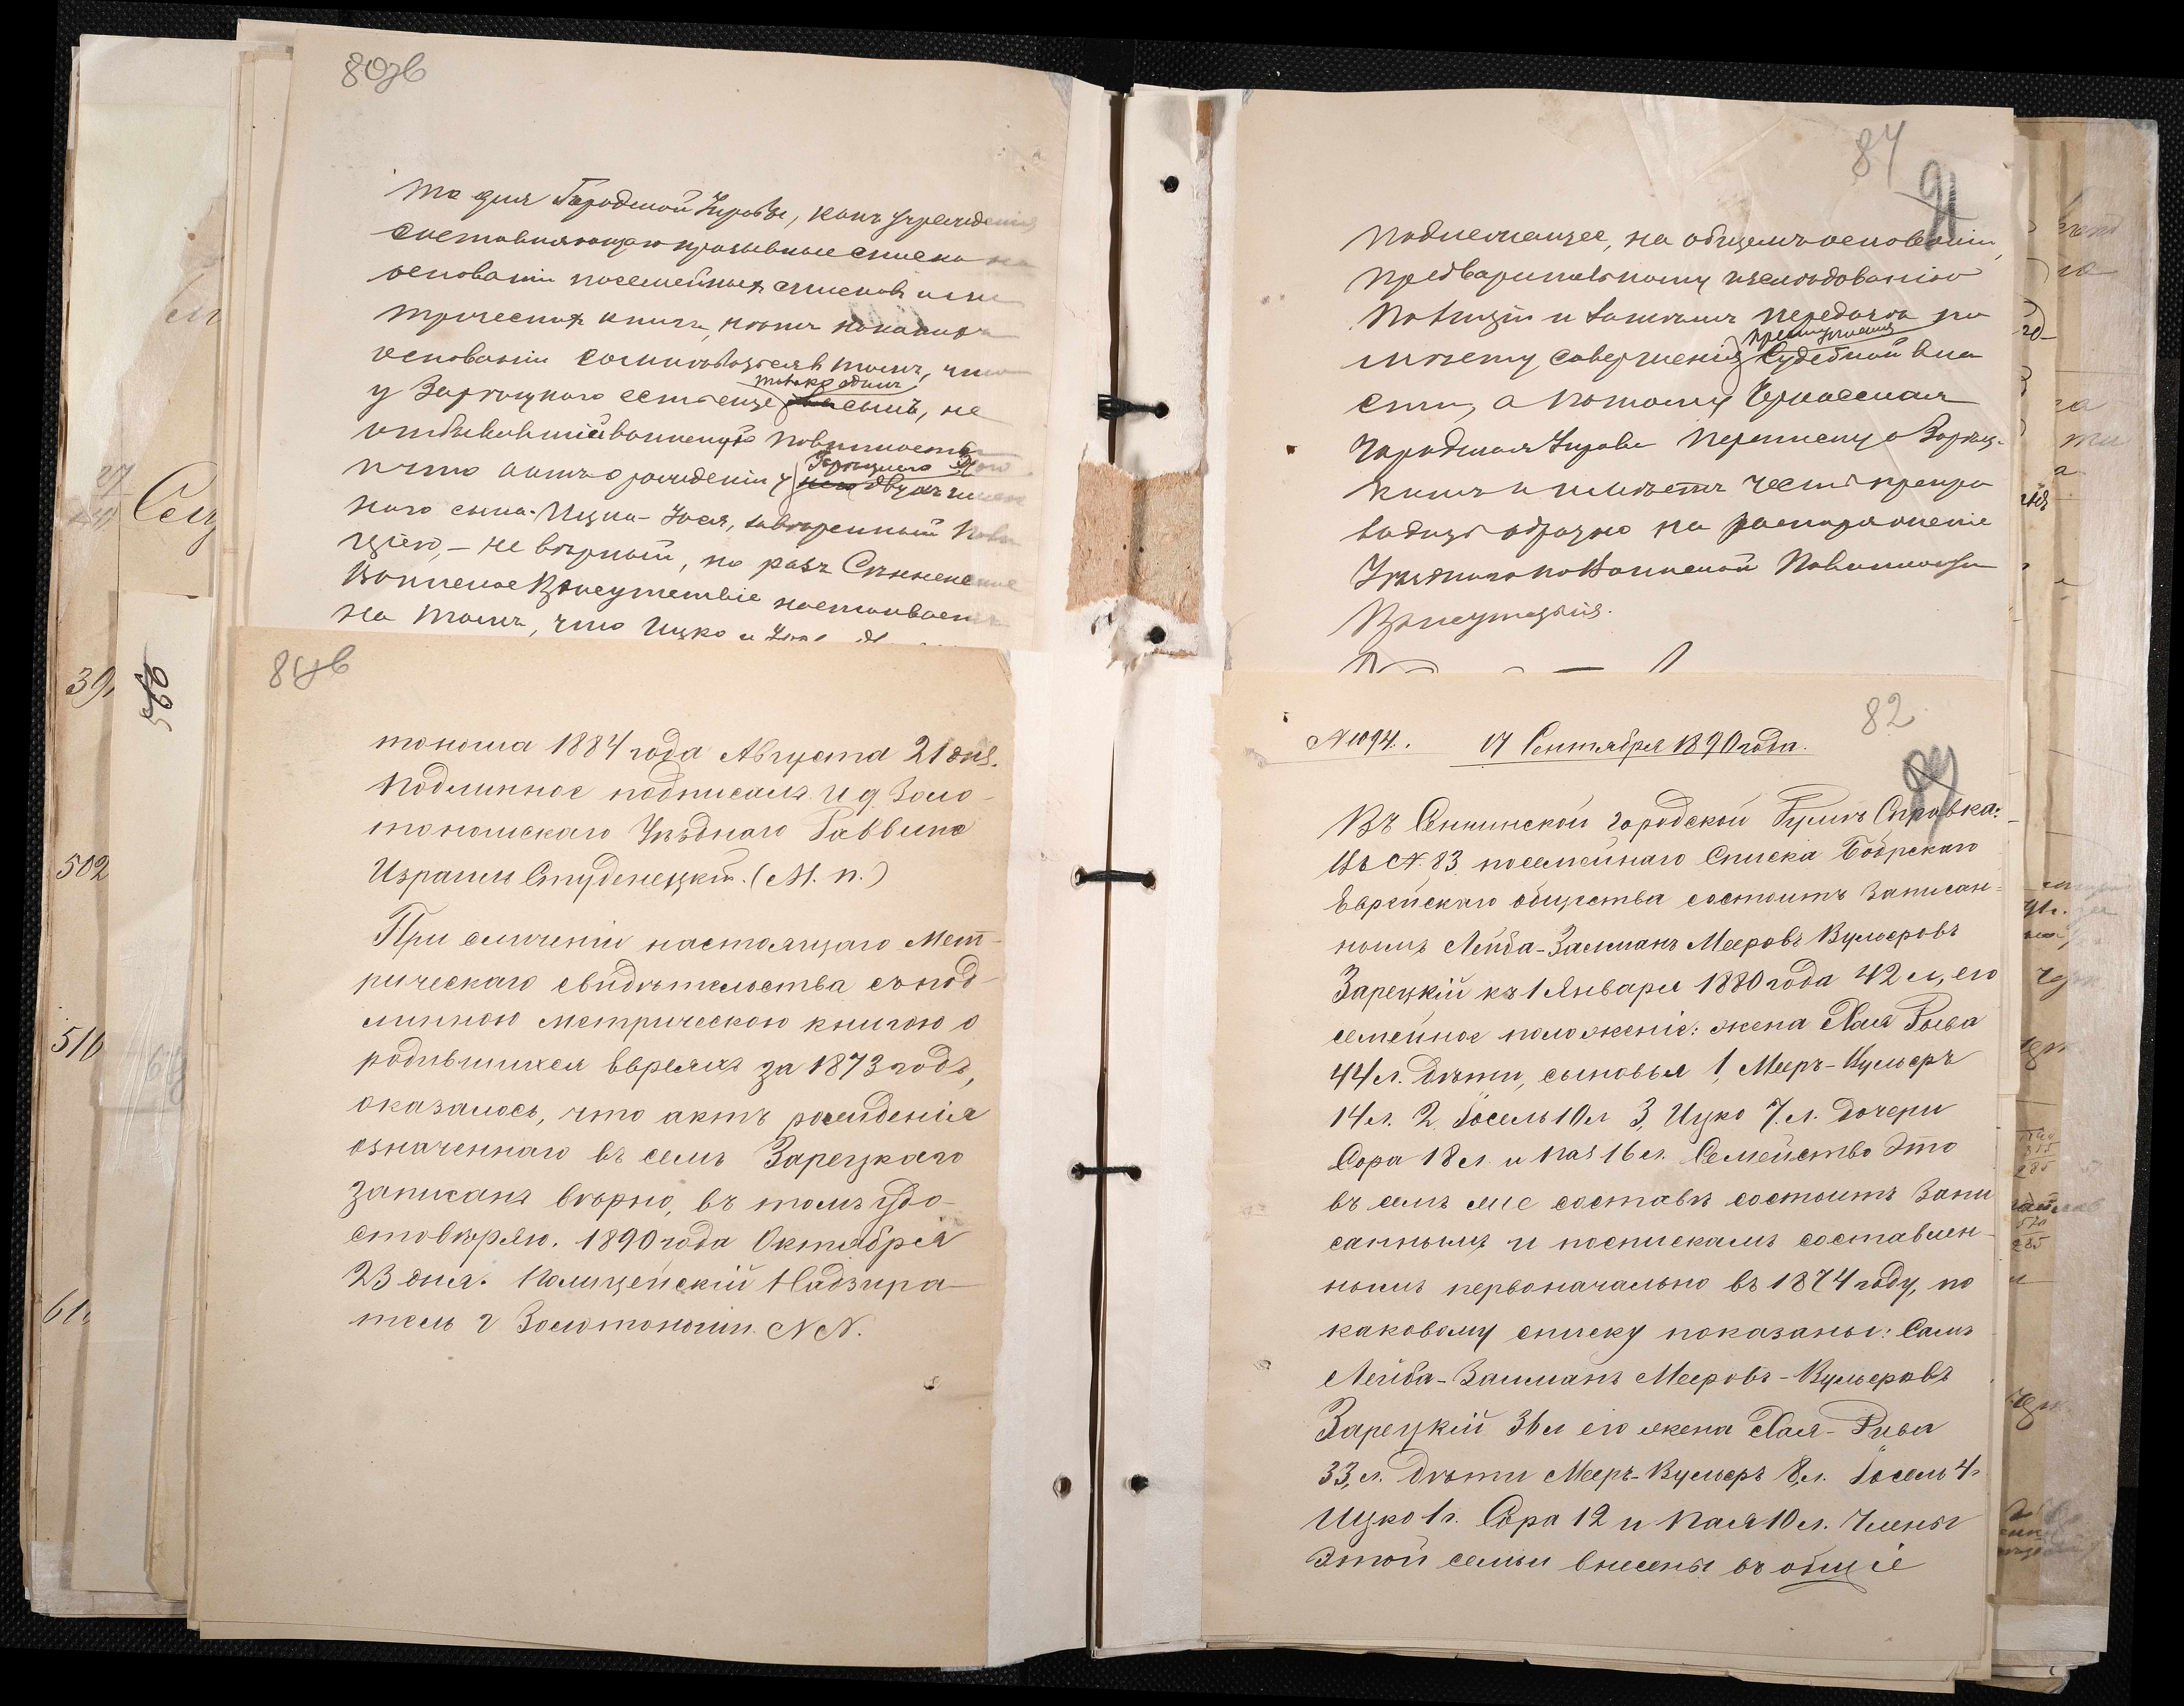 80об
та для Городской Управы, какъ учрежденія
составляющаго призывные списки на
основаніи посемейныхъ списковъ и ме
трическихъ книгъ, нѣтъ никакихъ
основаній сомнѣваться въ томъ, что
у Зарецкаго есть еще только одинъ сынъ, не
отбывавшій воинскую повинность
и что актъ о рожденіи у Зарецкаго двухъимен
наго сына Ицка-Іося, завѣренный поли
ціею, — не вѣрный, но разъ Сѣнненское
Воинское Присутствіе настаиваетъ
на томъ, что Ицко и
84
91
подлежащее, на общемъ основаніи,
предварительному изслѣдованію
Полиціи и затѣмъ передачѣ по
мѣсту совершенія преступленія Судебной вла
сти, а потому Черкасская
Городская Управа переписку о Зарец-
комъ имѣетъ честь препро
водить обратно на распоряженіе
Уѣзднаго по Воинской Повинности
Присутствія.
81об
тоноша 1884 года Августа 21 дня.
Подлинное подписалъ И д. Золо-
тоношскаго Уѣзднаго Раввина
Израиль Студенецкій. (М. п.)
При сличеніи настоящаго Мет-
рическаго свидѣтельства съ под-
линною метрическою книгою о
родившихся евреяхъ за 1873 годъ,
оказалось, что актъ рожденія
означеннаго въ семъ Зарецкаго
записанъ вѣрно, въ томъ удо-
стовѣряю. 1890 года Октября
23 дня. Полицейскій Надзира-
тель г Золотоноши. N N.
82
N 1094. 17 Сентября 1890 года.
Въ Сеннинской городской Думѣ Справка:
Въ N. 83 посемейнаго Списка Бобрскаго
Еврейскаго общества состоитъ Записан-
нымъ Лейба-Залманъ Мееровъ Вульфовъ
Зарецкій къ 1 Января 1880 года 42 л., его
семейное положеніе: жена Хая Рыва
44 л. дѣти, сыновья 1, Мееръ-Вульфъ
14 л. 2, Іосель 10 л 3, Ицко 7. л. Дочери
Сора 18 л. и Пая 16 л. Семейство это
въ семъ же составѣ состоитъ Запи
саннымъ и по спискамъ составлен-
нымъ первоначально въ 1874 году, по
каковому списку показаны: Самъ
Лейба-Залманъ Мееровъ-Вульфовъ
Зарецкій 36 л его жена Хая-Рива
33, л. дѣти Мееръ-Вульфъ 8, л. Іосель 4.
Ицко 1 г. Сора 12 и Пая 10 л. Члены
этой семьи внесены въ общіе
39
502
510